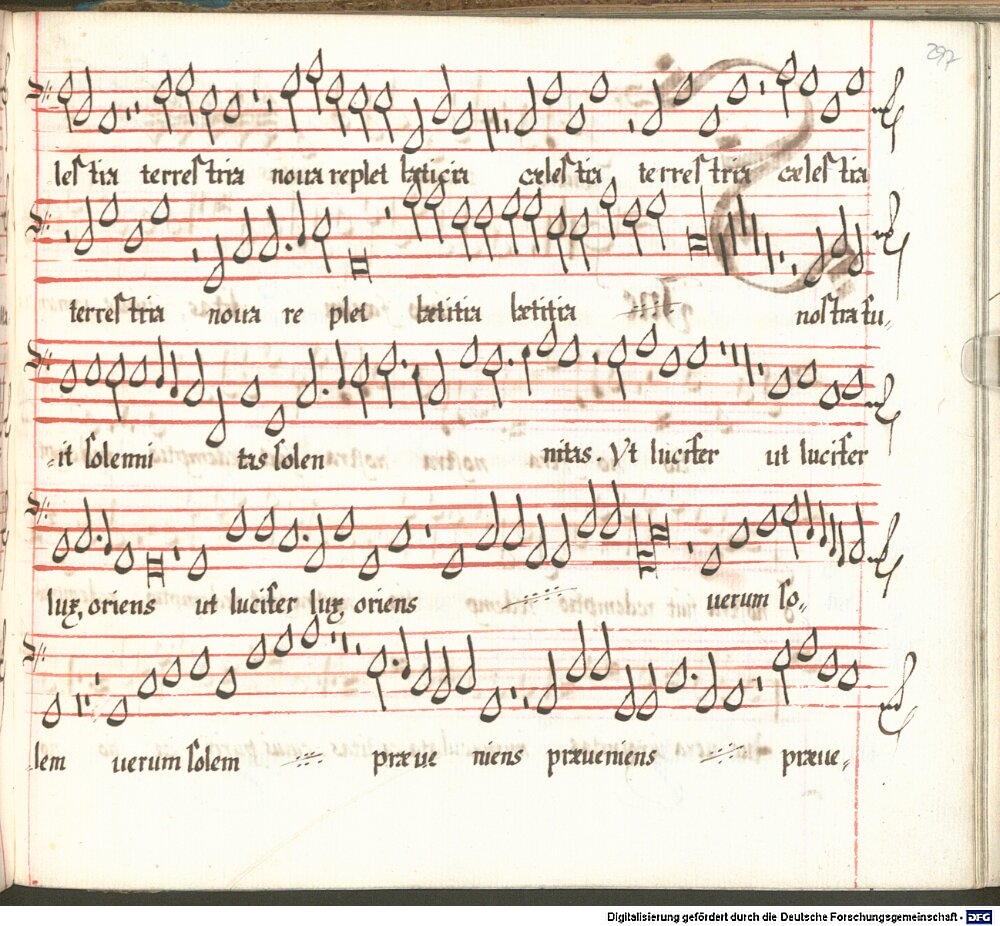 297
lestia terrestria noua replet lætitia cælestia terrestria cælestia
terrestria noua re plet lætitia lætitia nostra fu,,
,,it solenni tas solen nitas. Vt lucifer ut lucifer
lux, oriens ut lucifer lux, oriens uerum so,,
,,lem uerum solem præue niens præueniens præue,,
Digitalisierung gefördert durch die Deutsche Forschungsgemeinschaft - DFG